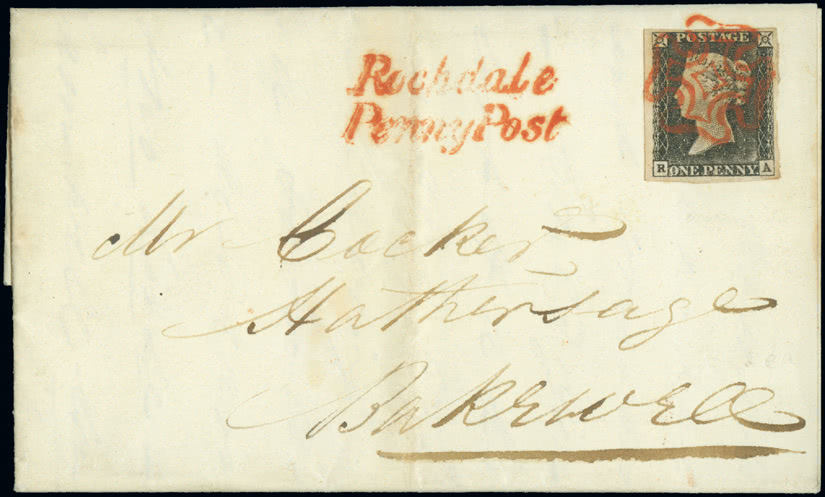 Rochdale
Penny Post
POSTAGE
R ONE PENNY A
Mr Cocker
Hathersage
Bakewell